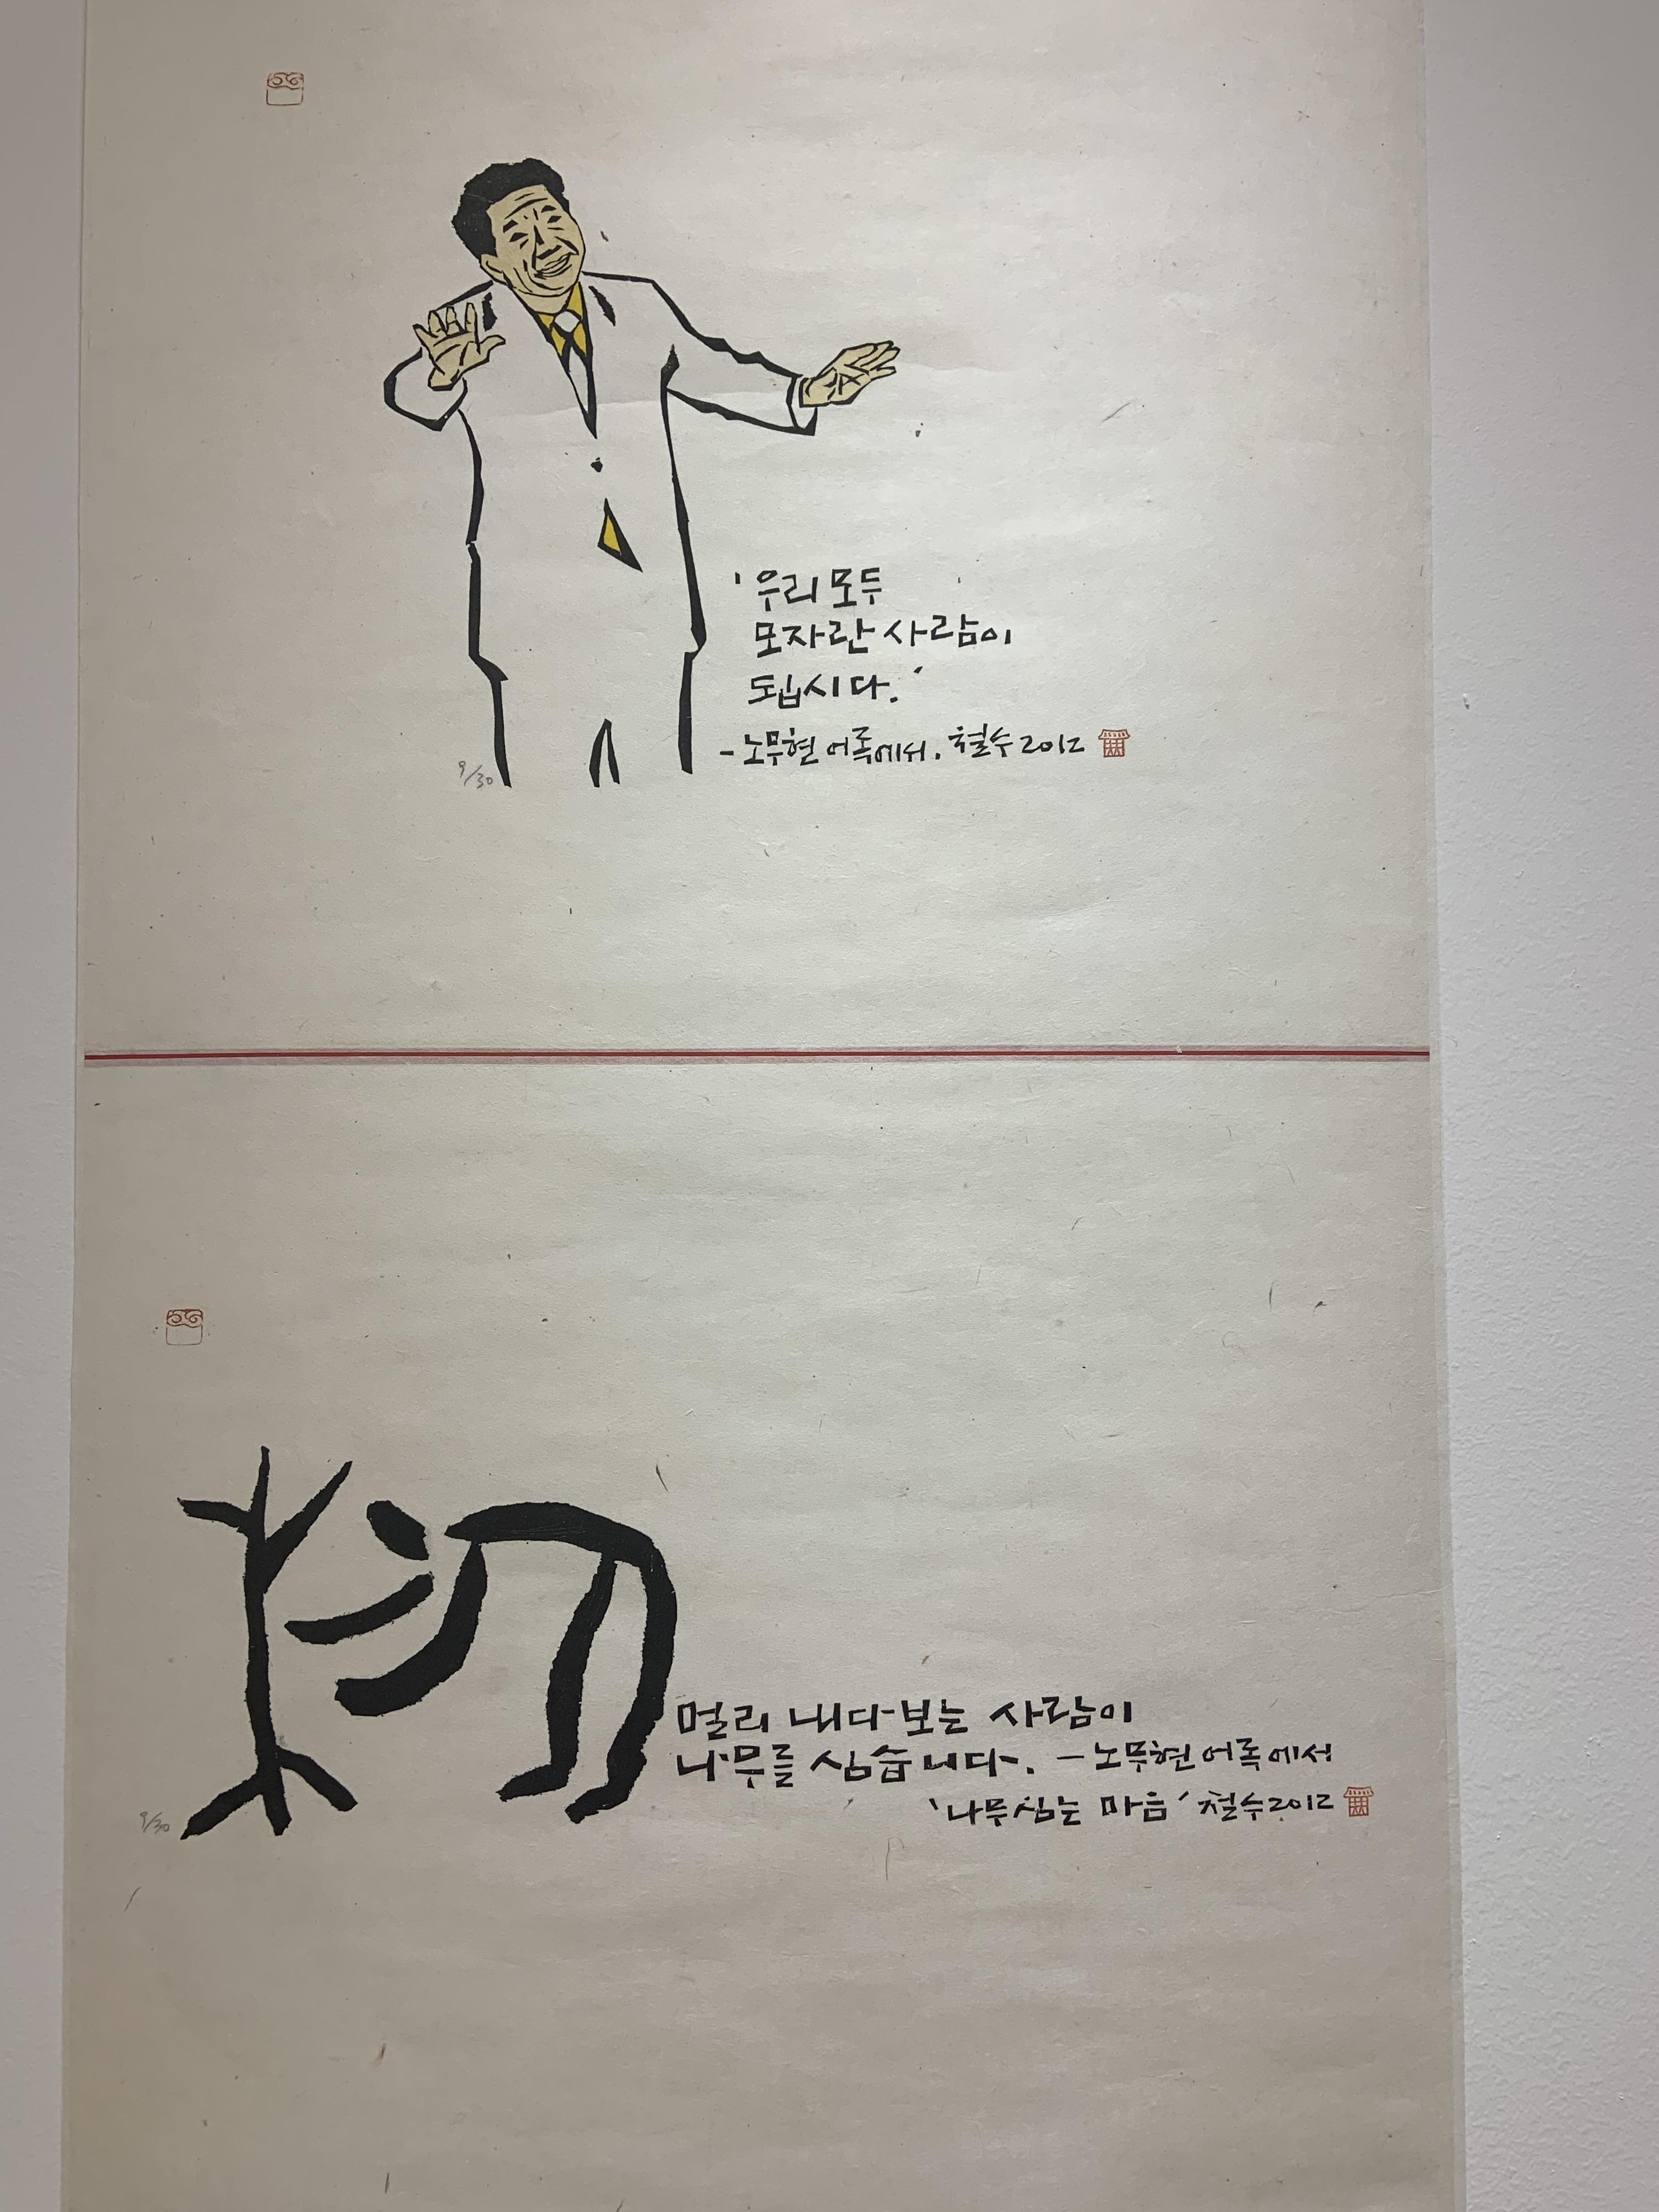 '우리 모두
모자란 사람이
됩시다.'
- 노무현 어록에서. 철수 2012
9/30
멀리 내다보는 사람이
나무를 심습니다. - 노무현 어록에서
'나무심는 마음' 철수 2012
9/30